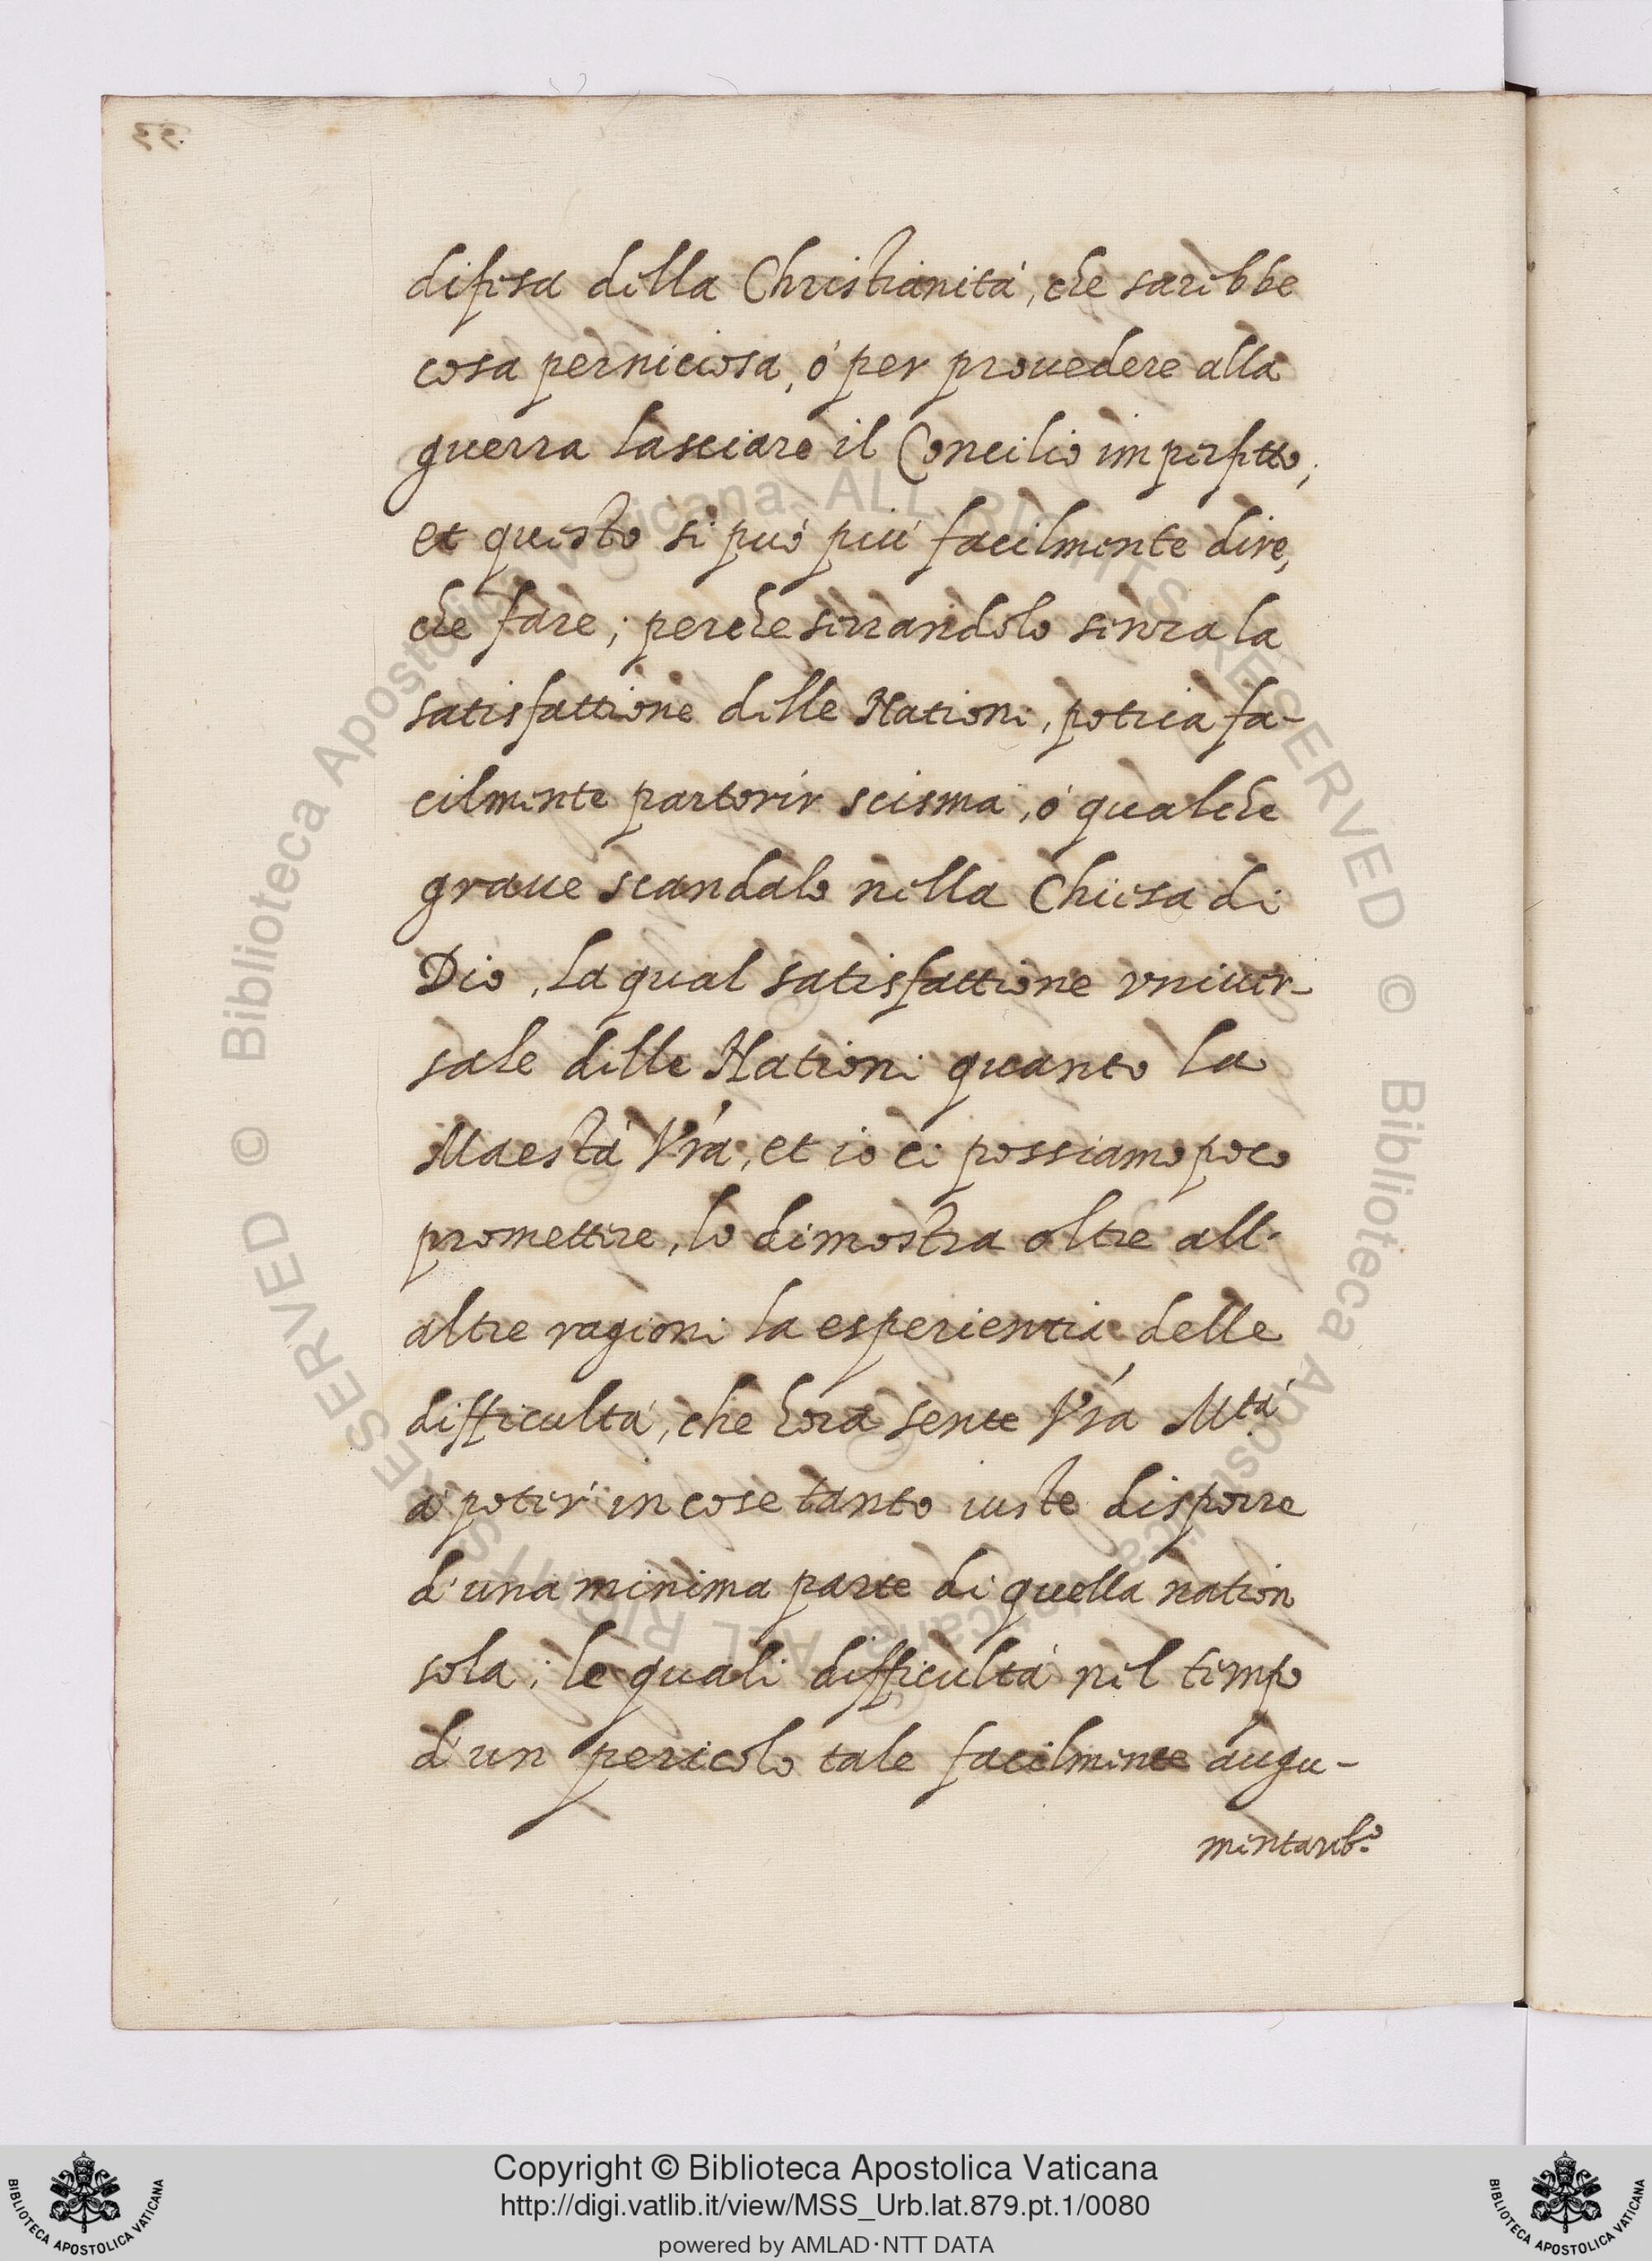 difesa della Christianità, che sarebbe
cosa perniciosa, ò per prouedere alla
guerra lasciare il Concilio imperfetto;
et questo si può più facilmente dire,
che fare; perche serrandolo senza la
satisfattione delle Nationi, potria fa-
cilmente partorir scisma, ò qualche
graue scandalo nella Chiesa di
Dio, La qual satisfattione vniuer-
sale delle Nationi quanto la
Maestà Vra, et io ci possiamo poco
promettere, lo dimostra oltre all'
altre ragioni la esperientia delle
difficultà, che hora sente Vra Mtà
à poter in cose tanto iuste disporre
d'una minima parte di quella nation
sola; le quali difficultà nel tempo
d'un pericolo tale facilmente augu-
mentareb.o
© Biblioteca Apostolica Vaticana ALL RIGHTS RESERVED © Biblioteca Apostolica Vaticana ALL RIGHTS RESERVED
Copyright © Biblioteca Apostolica Vaticana
http://digi.vatlib.it/view/MSS_Urb.lat.879.pt.1/0080
powered by AMLAD·NTT DATA
BIBLIOTECA APOSTOLICA VATICANA
BIBLIOTECA APOSTOLICA VATICANA